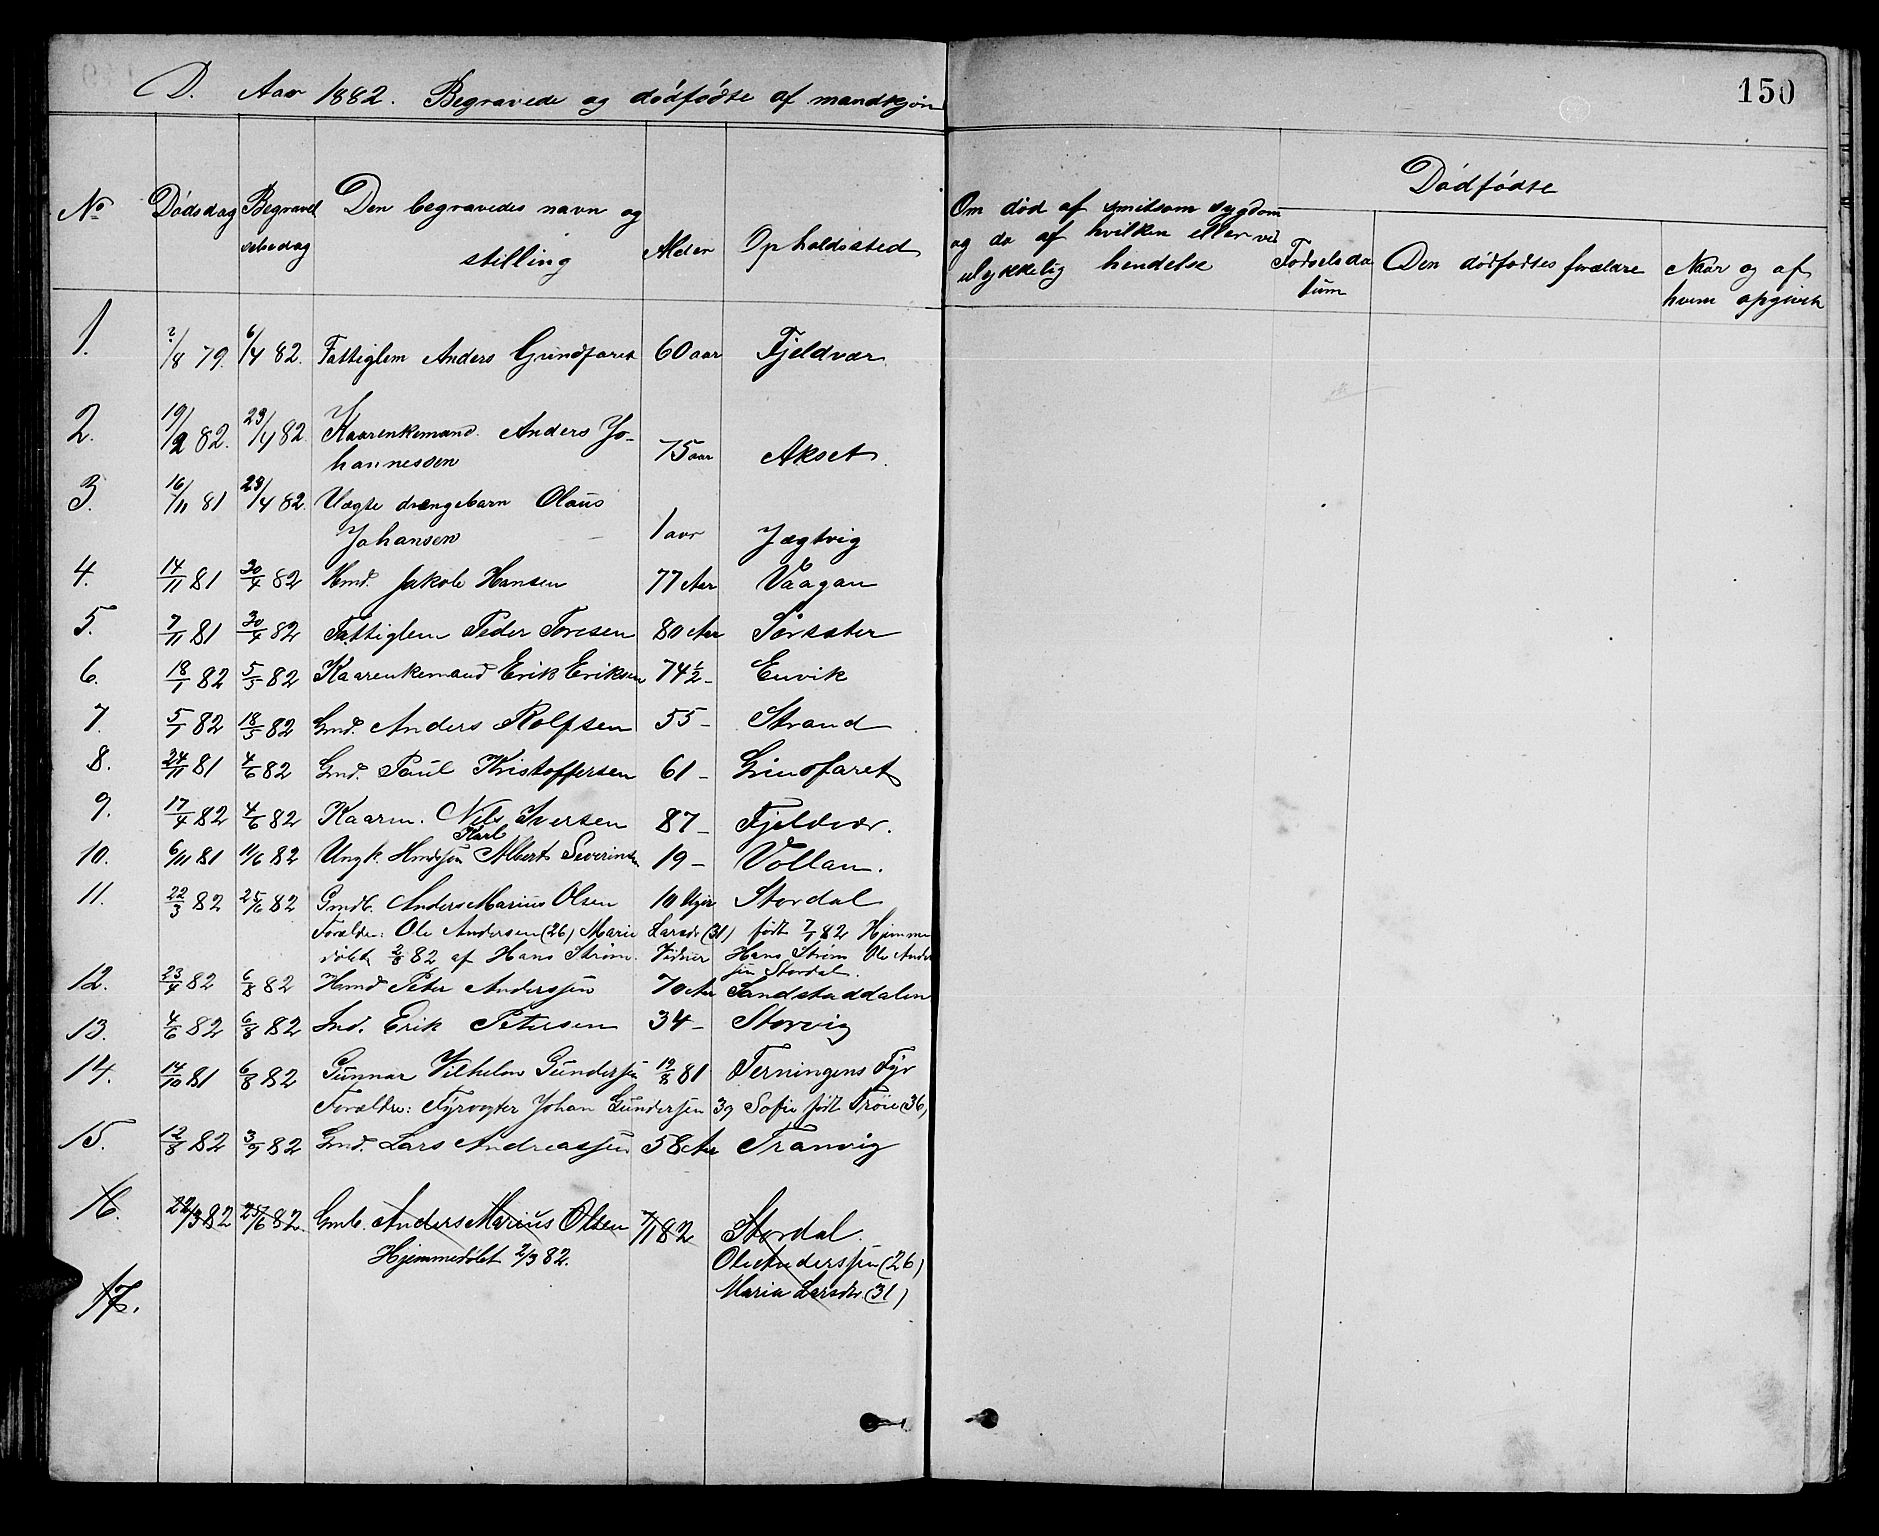 D. Aar 1882. Begravede og dödfödte af mandkjön
150
No Dödsdag Begravelsesdag Den begravedes navn og stilling Alder Opholdssted
Om död af smitsom sygdom og da af hvilken eller ved ulykkelig hendelse
Dödfödte
Födselsdatum Den dödfödtes forældre Naar og af hvem opgivet
1. ?/8 79. 6/4 82. Fattiglem Anders Grindfaret 60 aar Fjeldvær.
2. 19/2 82. 23/4 82. Kaarenkemand. Anders Jo-
hannessen 75 aar Akset.
3. 16/11 81 23/4 82. Uægte drængebarn Olaus
Johansen 1 aar Jægtvig
4. 14/11 81 30/4 82 Hmd. Jakob Hansen 77 Aar Vaagan
5. 7/11 81 30/4 82 Fattiglem Peder Toresen 80 Aar Sörsæter
6. 18/1 82 5/5 82 Kaarenkemand Erik Eriksen 74 1/2 - Envik
7. 5/1 82 18/5 82 Gmd. Anders Rolfsen 55 - Strand
8. 24/11 81 4/6 82 Gmd. Paul Kristoffersen 61 - Grindfaret
9. 17/4 82 4/6 82 Kaarm. Nils Iversen 87 - Fjeldvær.
Karl
10. 6/11 81 11/6 82 Ungk. Hmdssön Albert Severinsen 19 - Vollan.
11. 22/3 82 25/6 82 Gmdb. Anders Marius Olsen 10 Uger Stordal
Forældre: Ole Andersen (26) Marie Larsdr (31) födt 7/1 82 Hjemme
döbt 2/3 82 af Hans Ström. Vidner Hans Ström Ole Ander
sen Stordal.
12. 23/4 82 6/8 82 Hmd Peter Anderssen 70 Aar Sandstaddalen
13. 4/6 82 6/8 82 Ind. Erik Petersen 34 - Storvig
14. 14/10 81 6/8 82 Gunnar Vilhelm Gundersen 19/8 81 Terningens Fyr
Forældre: Fyrvogter Johan Gundersen 39 Sofie födt Tröie (36)
15. 12/8 82 3/9 82 Gmd. Lars Andreassen 58 Aar Tranvig
16. 22/3 82 25/6 82. Gmb. Anders Marius Olsen 7/1 82 Stordal.
Hjemmedöbt 2/3 82. Ole Anderssen (26)
Maria Larsdr. (31)
17.